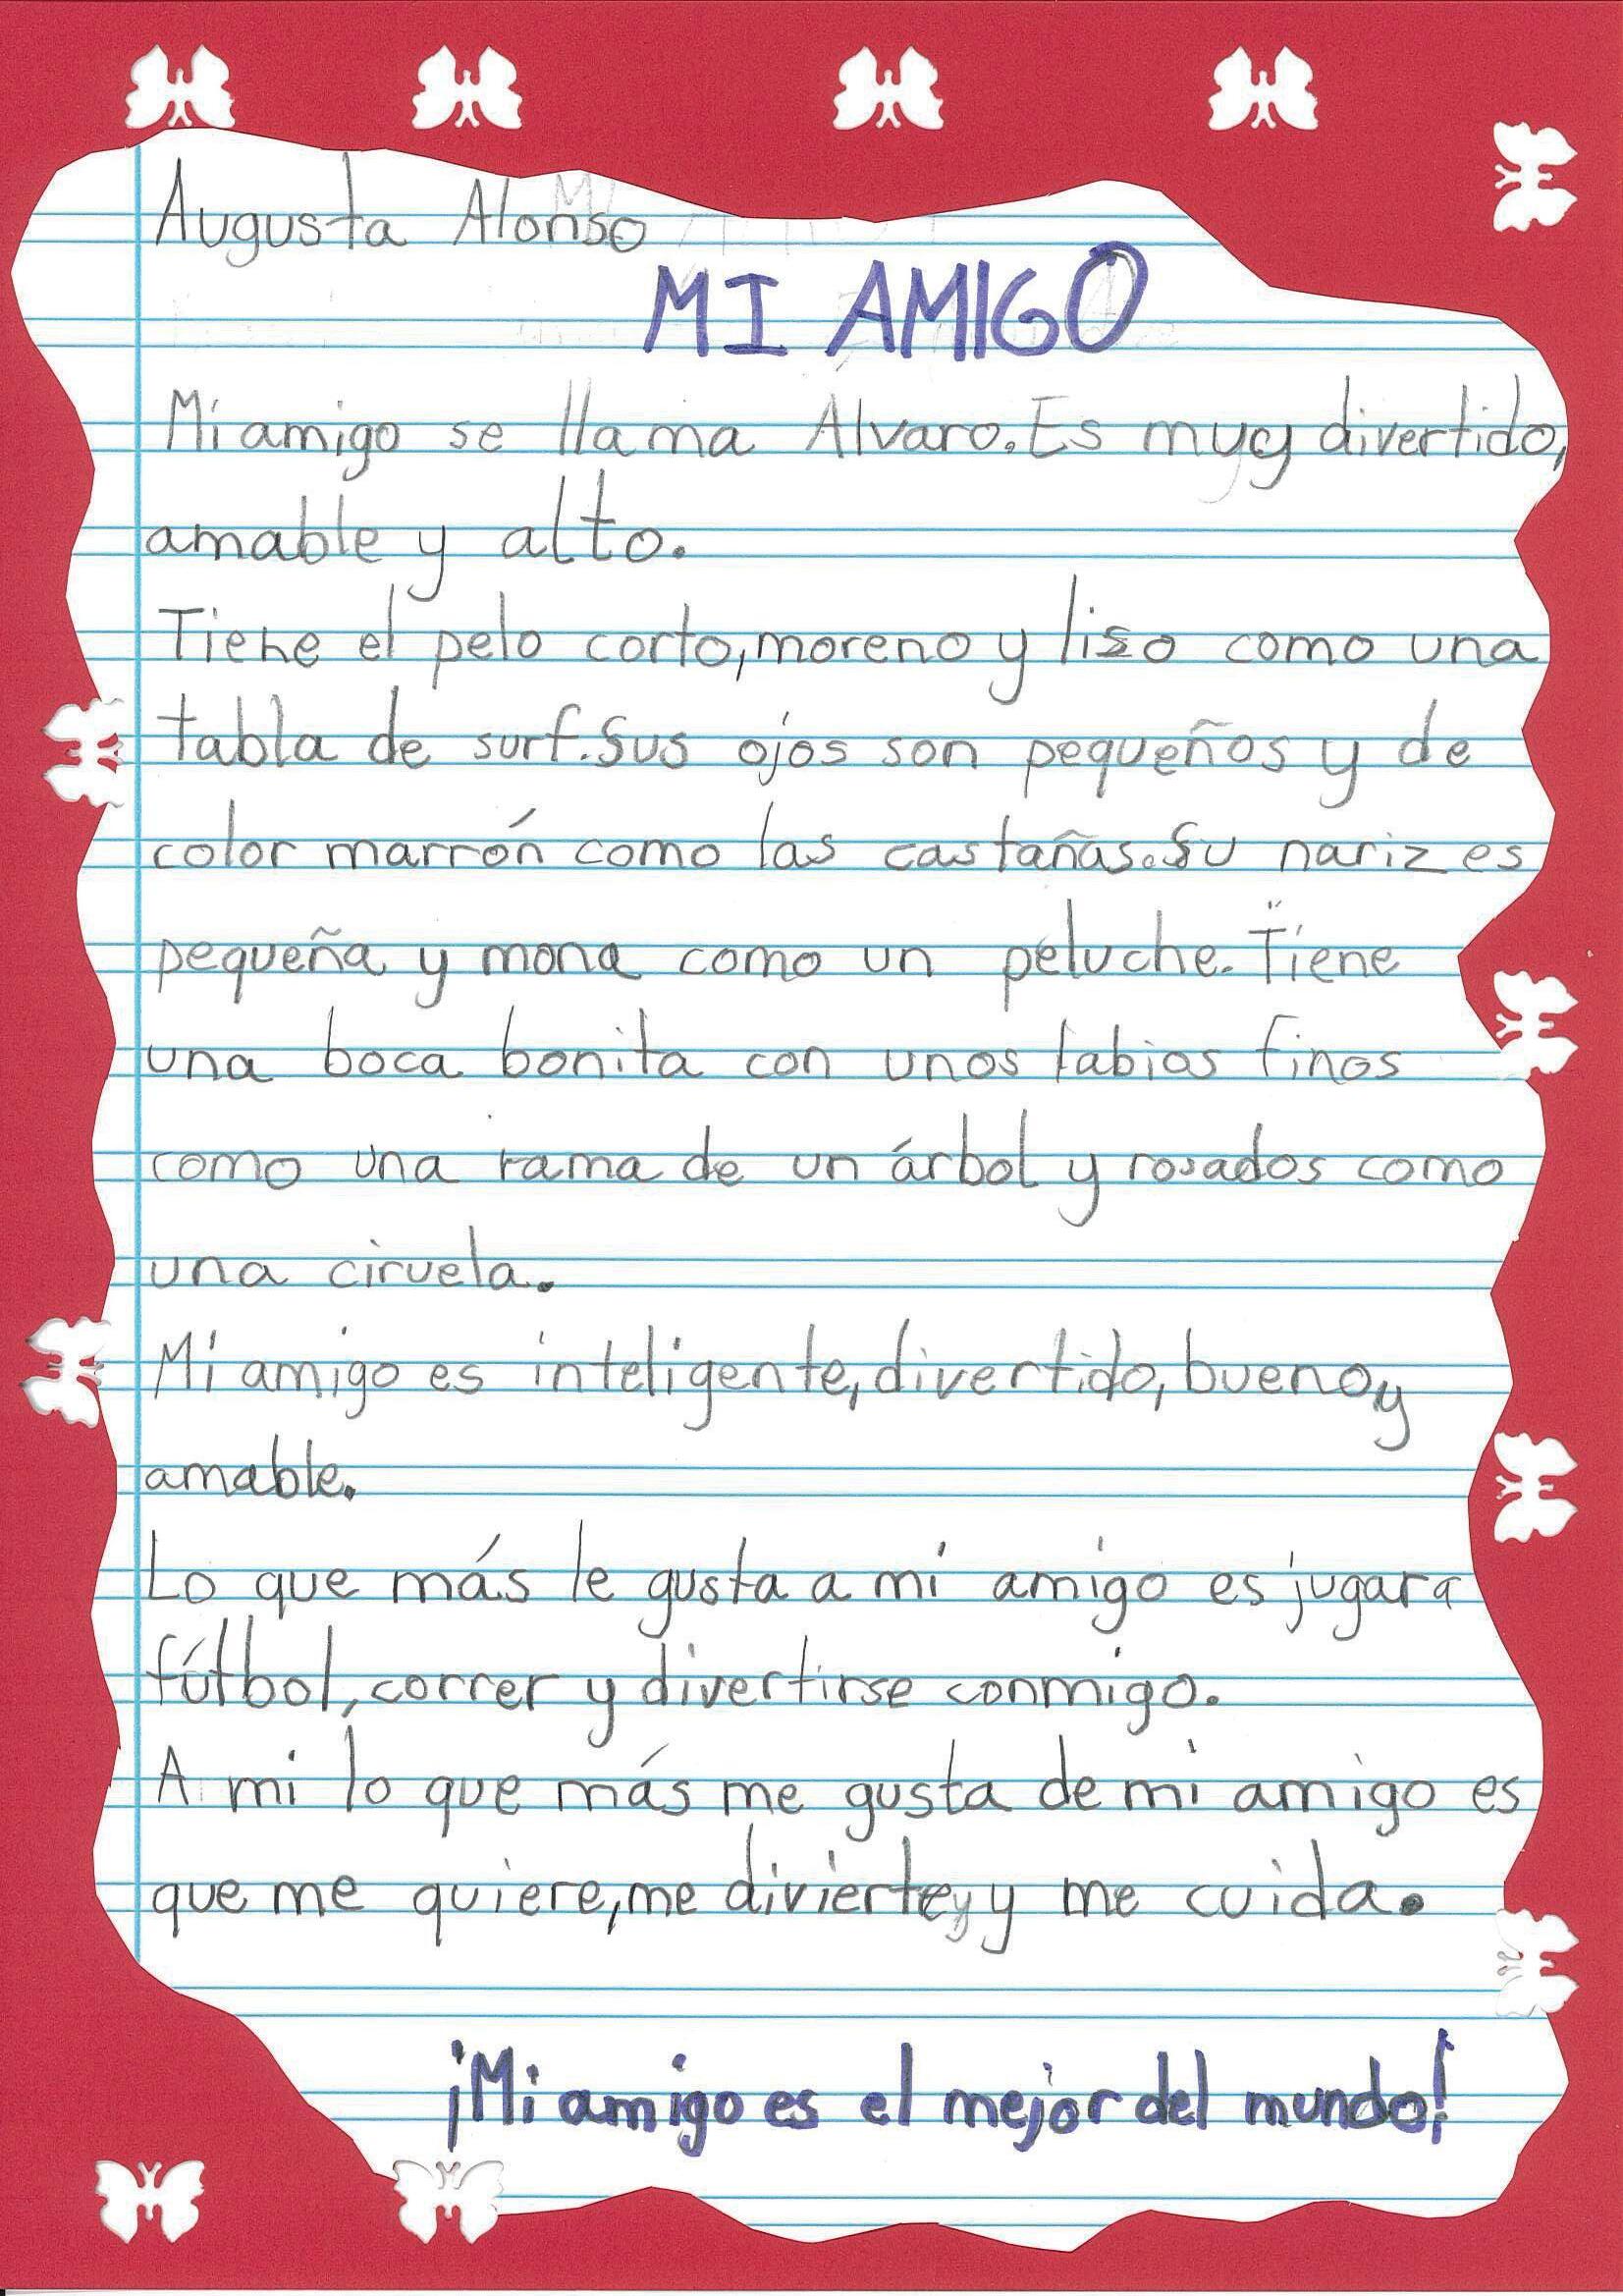 Augusta Alonso
MI AMIGO
Mi amigo se llama Álvaro. Es muy divertido,
amable y alto.
Tiene el pelo corto, moreno y liso como una
tabla de surf. Sus ojos son pequeños y de
color marrón como las castañas. Su nariz es
pequeña y mona como un peluche. Tiene
una boca bonita con unos labios finos
como una rama de un árbol y rosados como
una ciruela.
Mi amigo es inteligente, divertido, bueno y
amable.
Lo que más le gusta a mi amigo es jugar a
fútbol, correr y divertirse conmigo.
A mi lo que más me gusta de mi amigo es
que me quiere, me divierte y y me cuida.
¡Mi amigo es el mejor del mundo!